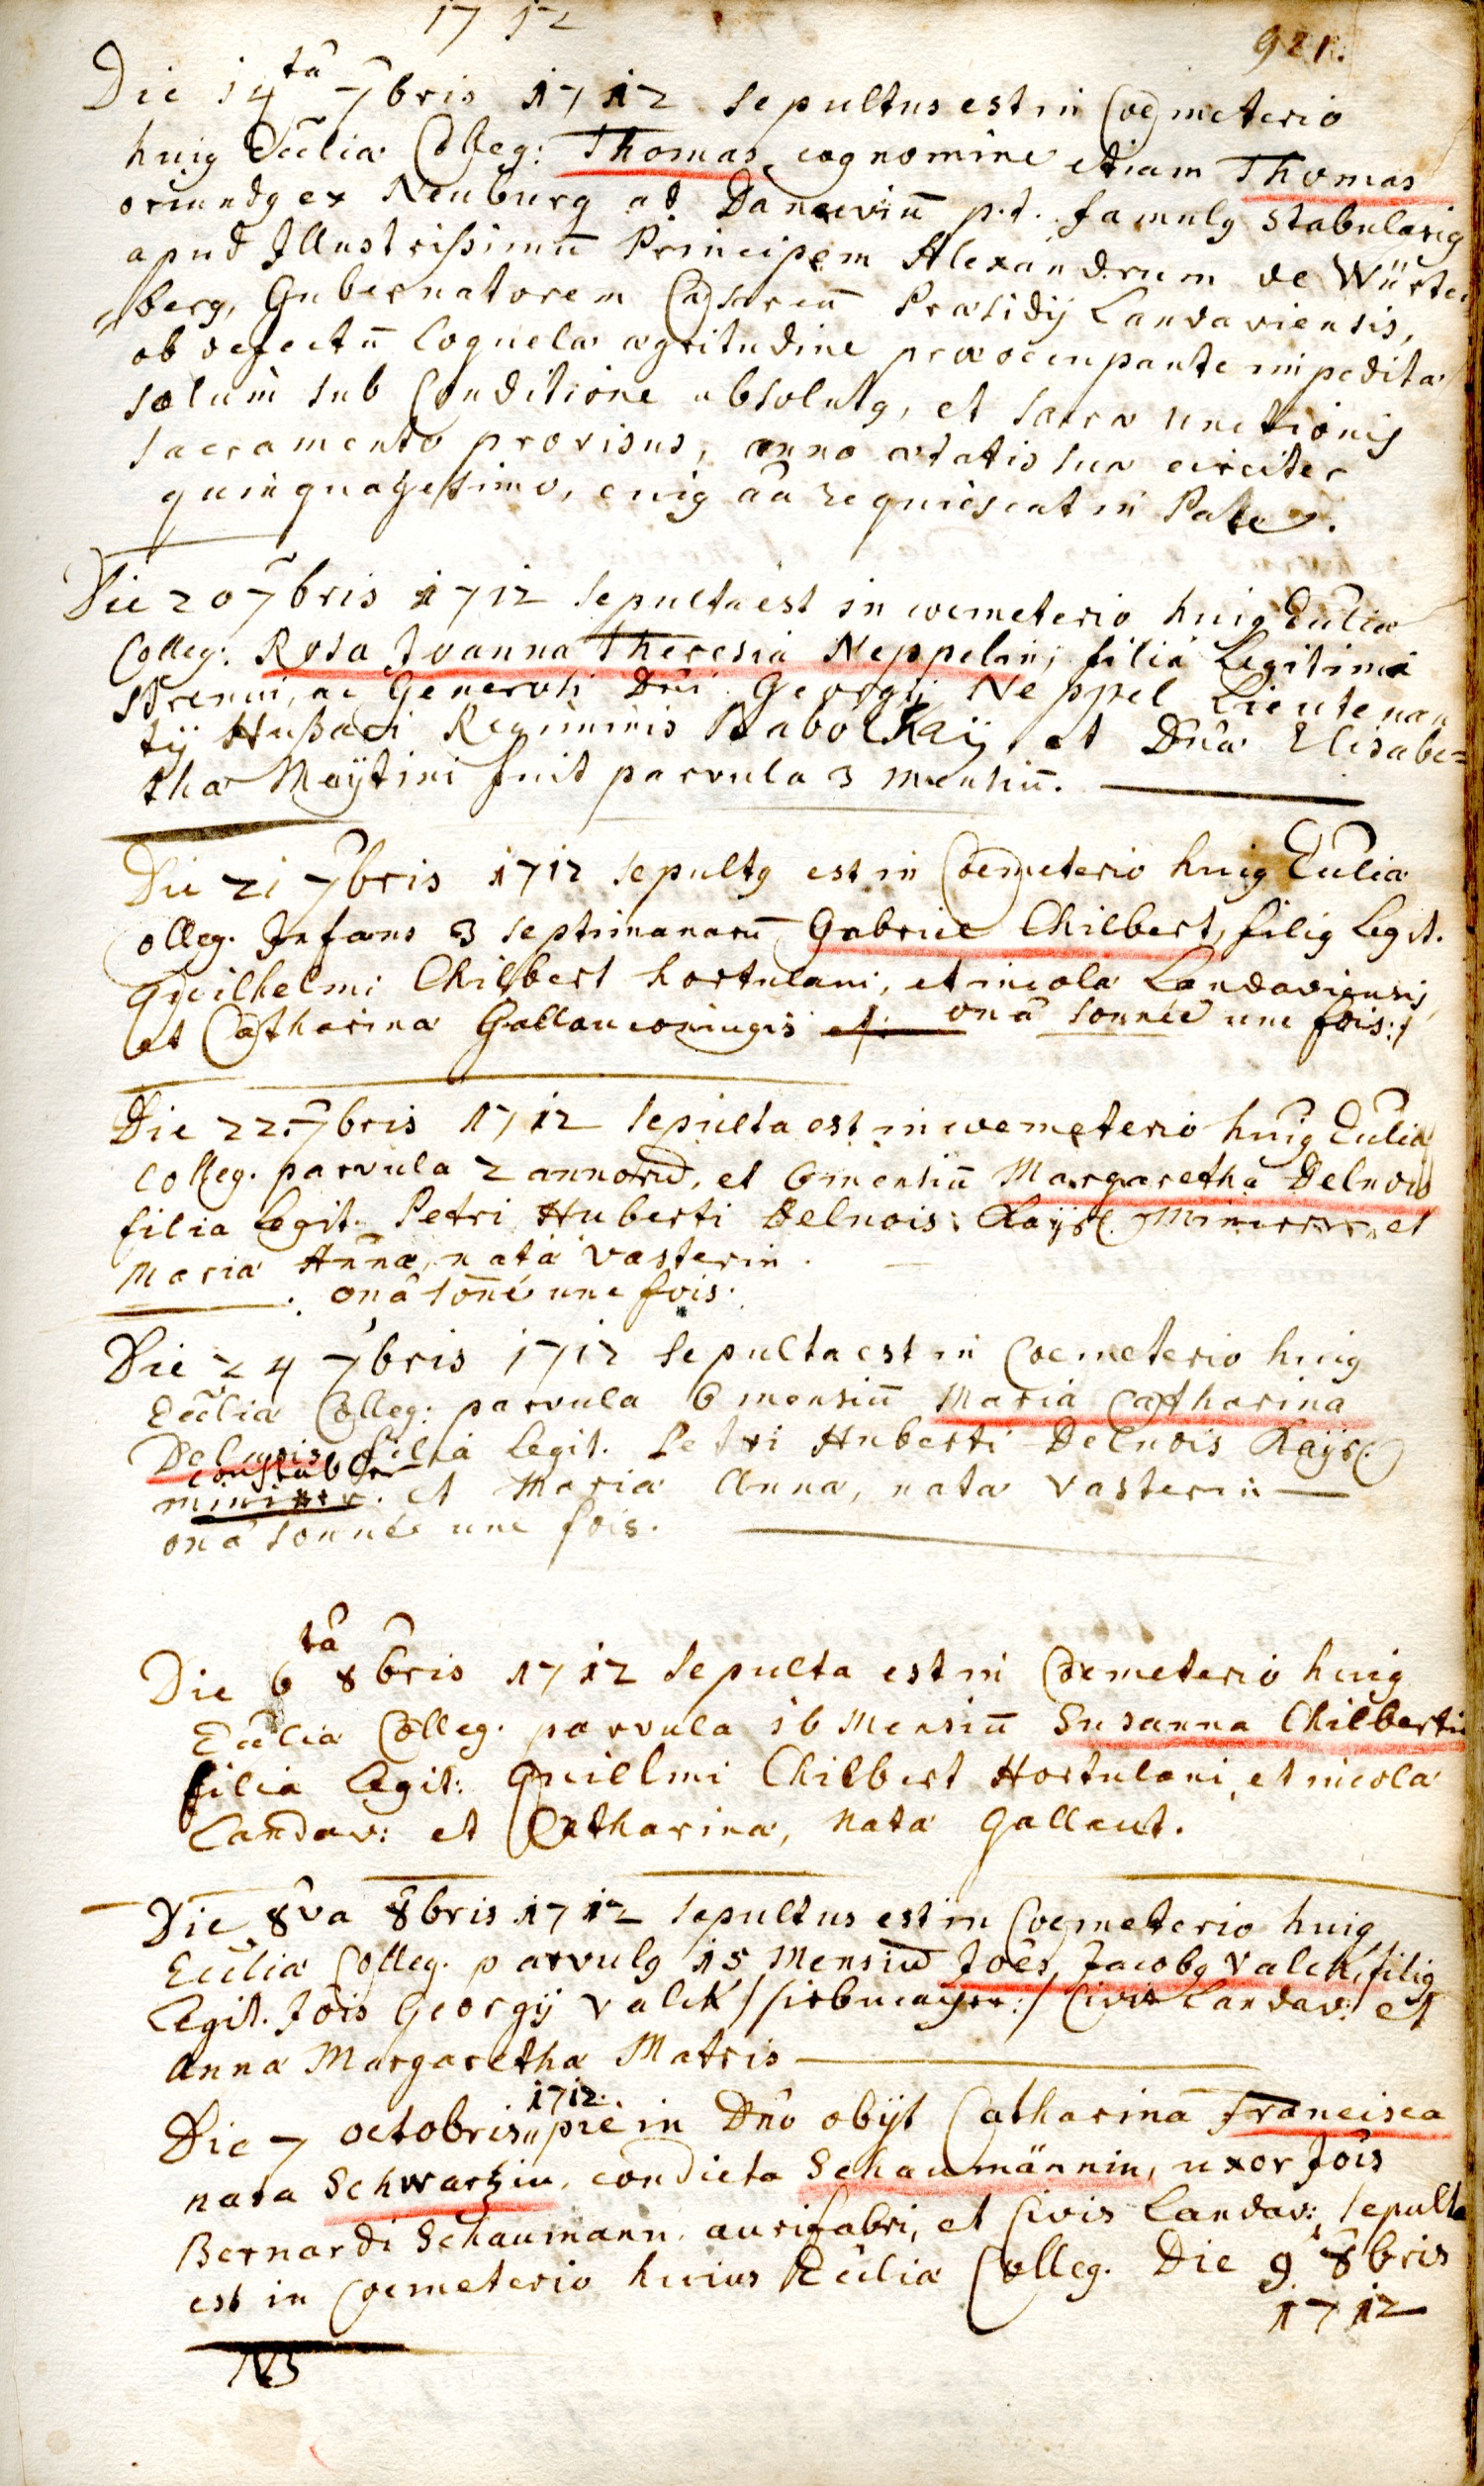 1712
921.
Die 14ta 7bris 1712 sepultus est in Coemeterio
huig Eccliæ Colleg: Thomas, cognomine etiam Thomas
oriundg ex Neuburg ad Danuviu p.t. famulg stabularig
apud Illustrissimu Principem Alexandrum de Würte
berg, Gubernatorem Cæsareu Præsidij Landaviensis,
ob defectu loquelæ ægritudine præoccupante impeditæ
solum sub Conditione absolutg, et sacræ unctionis
sacramento provisus, anno ætatis suæ circiter
quinquagesimo, cuig aa requiescat in Pace.
Die 20 7bris 1712 sepulta est in coemeterio huig Eccliæ
Colleg: Rosa Joanna Theresia Neppelin, filia Legitima
strenui, ac Generosi Dni Georgij Neppel Lieutenan
tij Hußari Regiminis Babolkaij, et Dnæ Elisabe=
tha Maÿtini fuit parvula 3 mensiu.
Die 21 7bris 1712 sepultg est in Coemeterio huig Eccliæ
Colleg. Infans 3 septimanaru Gabriel Chilbert, filig Legit.
Guilhelmi Chilbert hortulani, et incolæ Landaviensis,
et Catharina Gallau coniugis et. on â sonnée une fois:/
Die 22. 7bris 1712 sepulta est in coemeterio huig Eccliæ
Colleg. parvula 2 annoru, et 6 mensiu Margaretha Delnois
filia Legit. Petri Huberti Delnois: Kaÿsl. et
Maria Anna, nata Vasterin.
on â soné une fois.
Die 24 7bris 1712 sepulta est in Coemeterio huig
Eccliæ Colleg: parvula 6 mensiu Maria Catharina
Delnois filia Legit. Petri Huberti Delnois Kaÿsl.
constabler
minirer. et Maria Anna, nata Vasterin
on â sonnée une fois.
Die 6ta 8bris 1712 sepulta est in Coemeterio huig
Eccliæ Colleg. parvula 16 Mensiu Susanna Chilbertin
filia Legit: Guillmi Chilbert Hortulani, et incolæ
Landav: et Catharina, nata Gallaut.
Die 8va 8bris 1712 sepultus est in Coemeterio huig
Eccliæ Colleg. parvulg 15 Mensiu Joes, Jacobg Valck, filig
Legit. Jois Georgij Valck /: :/ Civis Landav: et
Anna Margaretha Matris
Die 7 octobris 1712. pie in Dno obijt Catharina Francisca
nata Schwartzin, condicta Schaumännin, uxor Jois
Bernardi Schaumann, aurifabri, et Civis Landav: sepulta
est in Coemeterio huius Eccliæ Colleg. Die 9 8bris
1712
NB